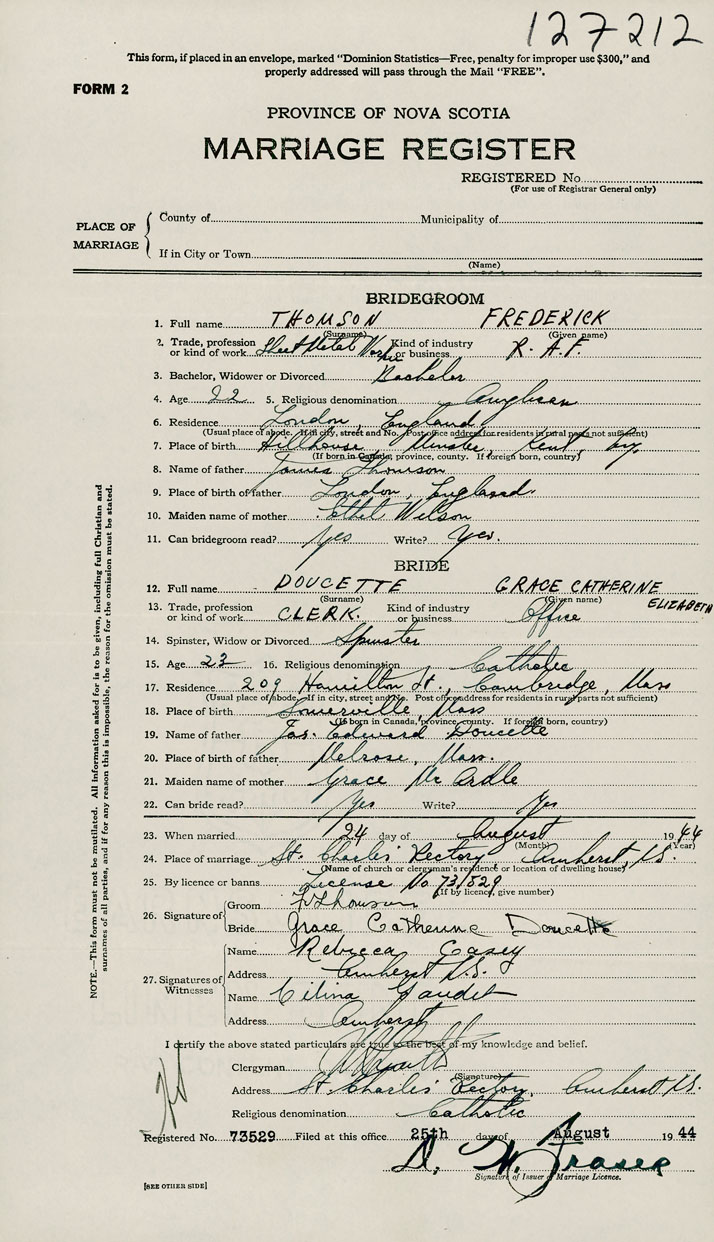 127212
This form, if placed in an envelope, marked "Dominion Statistics—Free, penalty for improper use $300," and
properly addressed will pass through the Mail "FREE".
FORM 2
PROVINCE OF NOVA SCOTIA
MARRIAGE REGISTER
REGISTERED No.
(For use of Registrar General only)
PLACE OF MARRIAGE
County of Municipality of
If in City or Town
(Name)
BRIDEGROOM
1. Full name THOMSON FREDERICK
(Surname) (Given name)
2. Trade, profession or kind of work Sheet Metal Worker Kind of industry or business R. A. F.
3. Bachelor, Widower or Divorced Bachelor
4. Age 22 5. Religious denomination Anglican
6. Residence London, England
(Usual place of abode. If in city, street and No. Post office address for residents in rural parts not sufficient)
7. Place of birth Hillhouse Minster, Kent,
(If born in Canada, province, county. If foreign born, country)
8. Name of father James Thomson
9. Place of birth of father London, England
10. Maiden name of mother Ethel Wilson
11. Can bridegroom read? Yes Write? Yes.
BRIDE
12. Full name DOUCETTE GRACE CATHERINE ELIZABETH
(Surname) (Given name)
13. Trade, profession or kind of work CLERK. Kind of industry or business Office
14. Spinster, Widow or Divorced Spinster
15. Age 23 16. Religious denomination Catholic
17. Residence 209 Hamilton St., Cambridge, Mass
(Usual place of abode. If in city, street and No. Post office address for residents in rural parts not sufficient)
18. Place of birth Somerville, Mass
(If born in Canada, province, county. If foreign born, country)
19. Name of father Jas. Edward Doucette
20. Place of birth of father Melrose, Mass.
21. Maiden name of mother Grace Mc Ardle
22. Can bride read? Yes Write? Yes
23. When married 24 day of August 1944
(Month) (Year)
24. Place of marriage St. Charles' Rectory, Amherst, N.S.
(Name of church or clergyman's residence or location of dwelling house)
25. By licence or banns License No 73/529
(If by licence, give number)
26. Signature of
Groom F Thomson
Bride Grace Catherine Doucette
27. Signatures of Witnesses
Name Rebecca Casey
Address Amherst N.S.
Name Gaudet
Address Amherst
I certify the above stated particulars are true to the best of my knowledge and belief.
Clergyman
(Signature)
Address St. Charles' Rectory, Amherst N.S.
Religious denomination Catholic
Registered No. 73529 Filed at this office 25th day of August 1944
D. W. Fraser
Signature of Issuer of Marriage Licence.
[SEE OTHER SIDE]
NOTE.—This form must not be mutilated. All information asked for is to be given, including full Christian and
surnames of all parties, and if for any reason this is impossible, the reason for the omission must be stated.